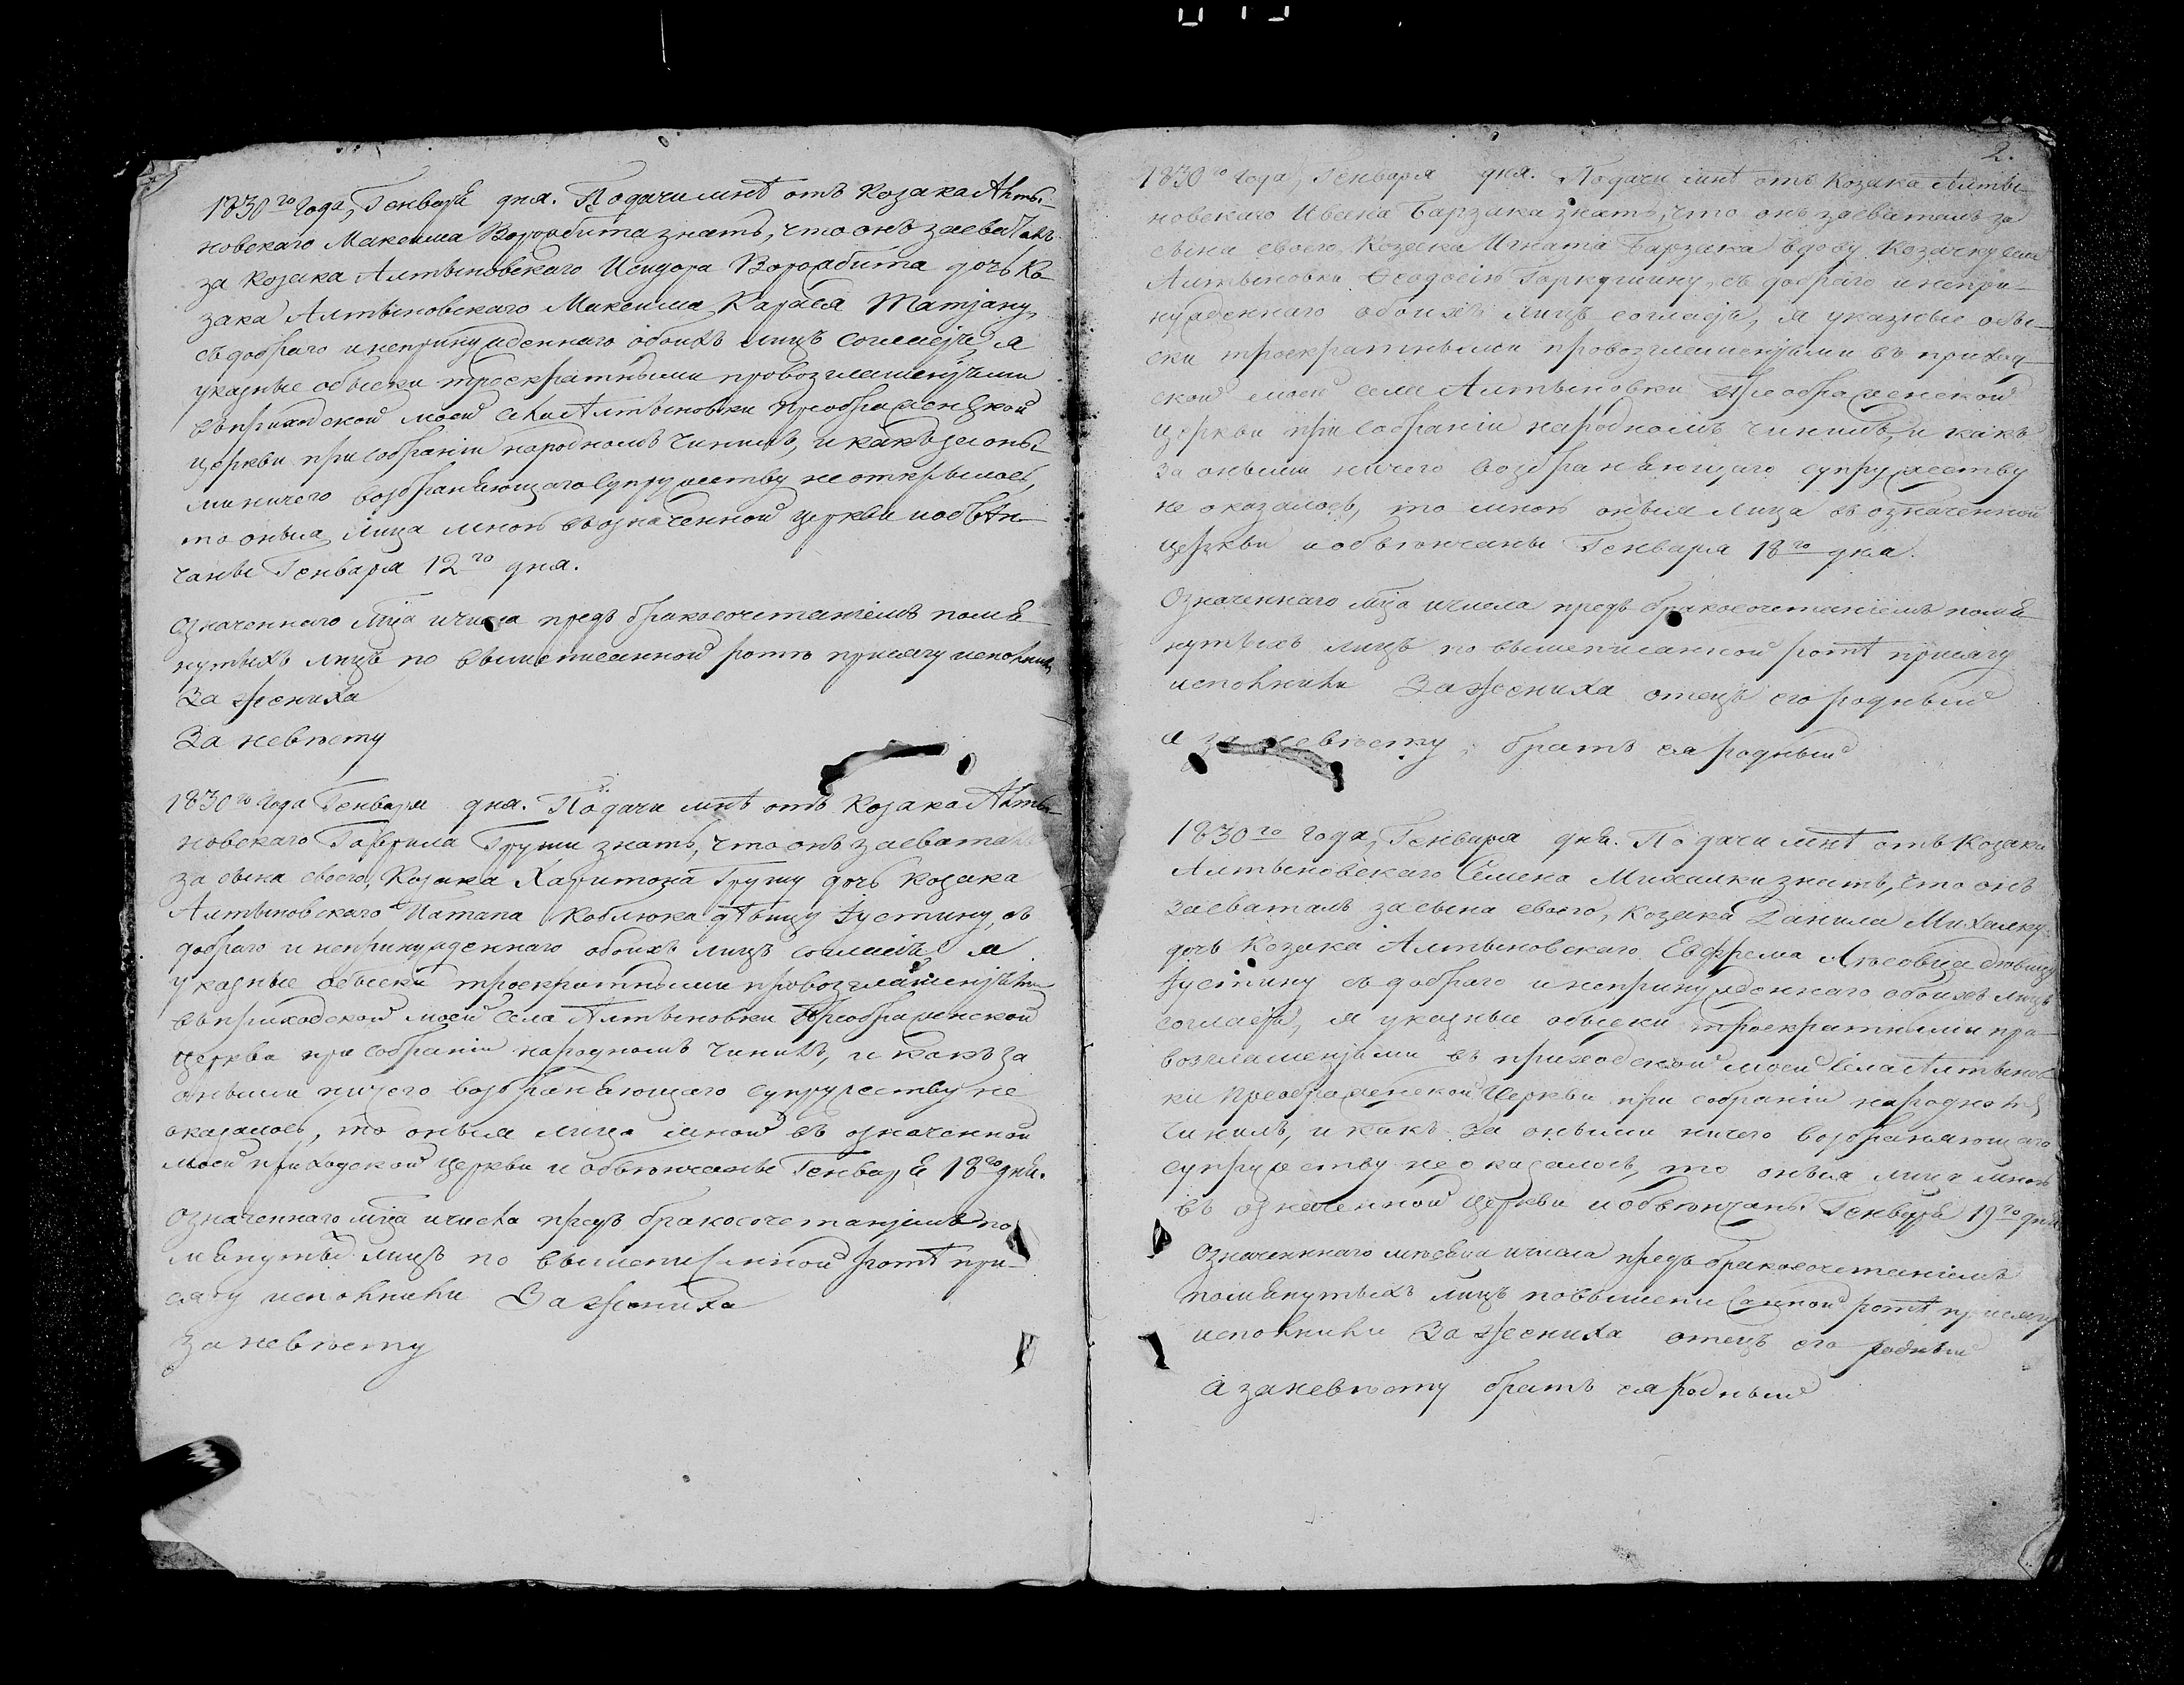 1830го Года, Генваря дня. Подачи мнѣ отъ Козака Алты-
новскаго Максима Ворожбита знать, что онъ засваталъ
за Козака Алтыновскаго Исидора Ворожбита дочь Ко-
зака Алтыновскаго Максима Карася Татіану,
съ добраго и непринужденнаго обоихъ лицъ согласія, я
указные обыски троекратными провозглашеніями
въ приходской моей села Алтыновки Преображенской
церкви при собраніи народномъ чинилъ, и какъ за оны-
ми ничего возбраняющаго супружеству не открылось,
то оныя лица мною въ означенной церкви и обвѣн-
чаны Генваря 12го дня.
Означеннаго мца и числа предъ бракосочетаніемъ помя-
нутыхъ лицъ по вышеписанной ротѣ присягу исполнили,
За жениха
За невѣсту
1830го Года Генваря дня. Подачи мнѣ отъ Козака Алты-
новскаго Гаврила Груши знать, что онъ засваталъ
за сына своего, Козака Харитона Грушу дочь Козака
Алтыновскаго Потапа Коблюка дѣвицу Іустину, съ
добраго и непринужденнаго обоихъ лицъ согласія я
указные обыски троекратными провозглашеніями
въ приходской моей села Алтыновки Преображенской
церкви при собраніи народномъ чинилъ, и какъ за
оными ничего возбраняющаго супружеству не
оказалось, то оныя лица мной въ означенной
моей приходской церкви и обвѣнчаны Генваря 18го дня.
Означеннаго мца и числа предъ бракосочетаніемъ по-
мянутыхъ лицъ по вышеписанной ротѣ при-
сягу исполнили За жениха
за невѣсту
2.
1830го Года, Генваря дня. Подачи мнѣ отъ Козака Алты-
новскаго Ивана Барзака знать, что онъ засваталъ за
сына своего, Козака Игната Барзака вдову Козачку села
Алтыновки Ѳеодосію Гаркушину, съ добраго и непри-
нужденнаго обоихъ лицъ согласія, я указные обы-
ски троекратными провозглашеніями въ приход-
ской моей села Алтыновки Преображенской
церкви при собраніи народномъ чинилъ, и какъ
за оными ничего возбраняющаго супружеству
не оказалось, то мною оныя лица въ означенной
церкви и обвѣнчаны Генваря 18го дня.
Означеннаго мца и числа предъ бракосочетаніемъ помя-
нутыхъ лицъ по вышеписанной ротѣ присягу
исполнили За жениха отецъ его родный
а за невѣсту, братъ ея родный
1830го Года, Генваря дня. Подачи мнѣ отъ Козака
Алтыновскаго Семена Михалки знать, что онъ
засваталъ за сына своего, Козака Данила Михалку
дочь Козака Алтыновскаго Евфрема Лѣсовца дѣвицу
Іустину съ добраго и непринужденнаго обоихъ лицъ
согласія, я указные обыски троекратными про-
возглашеніями въ приходской моей села Алтынов-
ки Преображенской Церкви при собраніи народномъ
чинилъ, и какъ за оными ничего возбраняющаго
супружеству не оказалось, то оныя лица мною
въ означенной церкви и обвѣнчаны Генваря 19го дня
Означеннаго мѣсяца и числа предъ бракосочетаніемъ
помянутыхъ лицъ по вышеписанной ротѣ присягу
исполнили За жениха отецъ его родный
а за невѣсту братъ ея родный